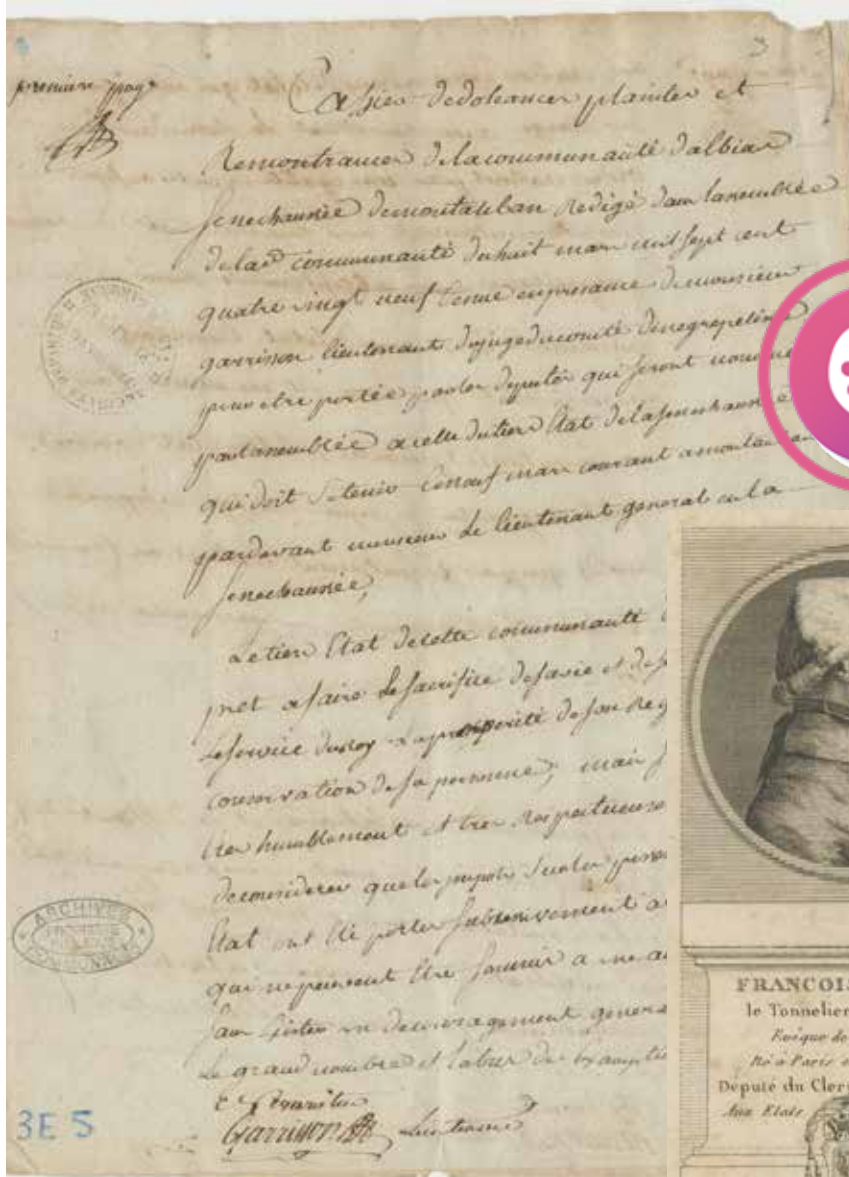 3
premiere page
Cahier de doleances plaintes et
Remontrances de la communauté dalbias
senechaussée de montauban redigé dans lassemblée
de lad communauté du huit mars mil sept cent
quatre vingt neuf tenue en presance de monsieur
garrisson lieutenant de juge du comté de negrepelisse
pour etre portée par les deputés qui seront nommés
par lassemblée a celle du tiers Etat de la senechaussée
qui doit se tenir le neuf mars courant a montauban
pardevant monsieur le lieutenant general en la
senechaussée,
Le tiers Etat de cette communauté
pret a faire le sacrifice de sa vie et de
le service du roy la prosperité de son
conservation de sa personne, mais
tres humblement et tres respectueuse
de considerer que les impots seuls
Etat ont été portés successivement
qui ne peuvent etre fournis a
sans un decouragement genera
le grand nombre et labus
Garrisson Lieutenant
ARCHIVES
3E 5
FRANCOIS
le Tonnelier
Evêque de
Né à Paris
Député du Cler
Aux Etats